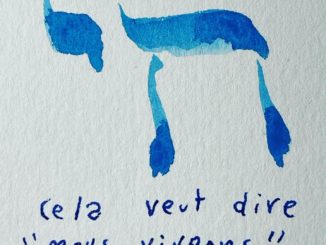 חי
Cela veut dire
"nous vivrons"